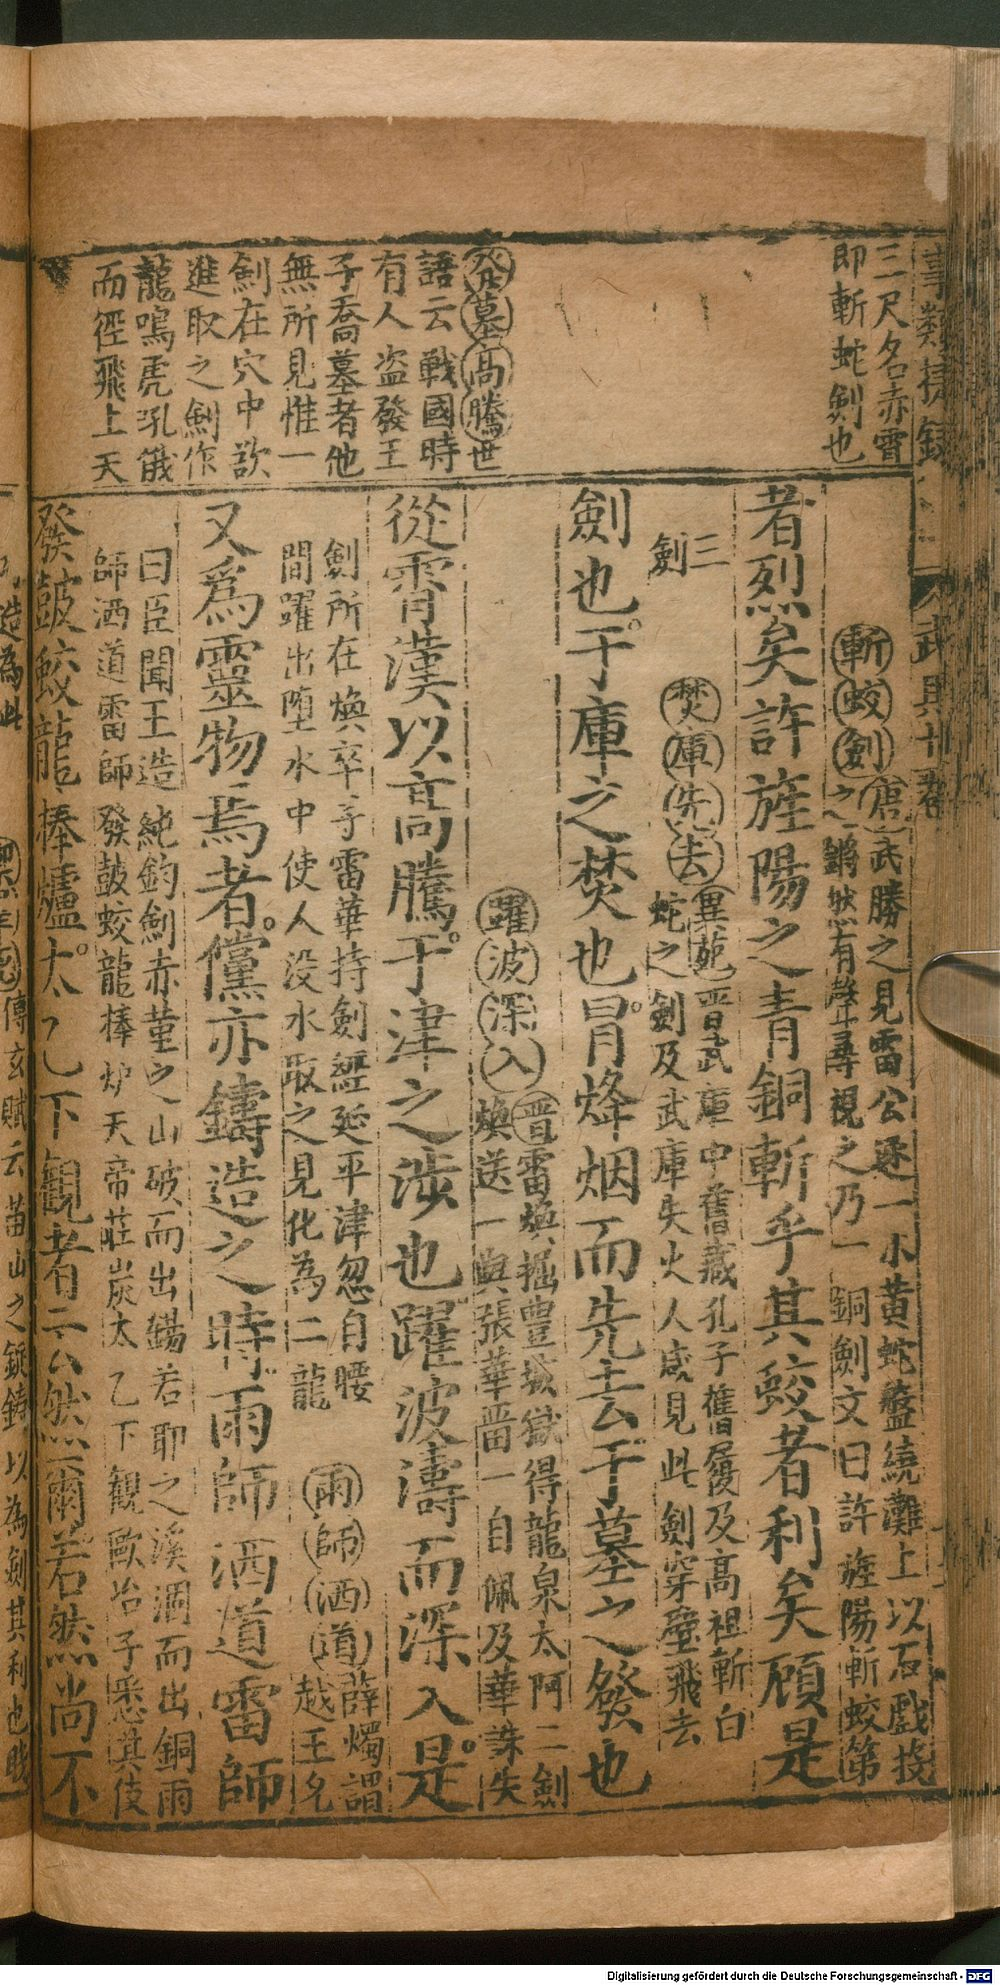 三尺名赤霄
即斬蛇劍也
發墓高騰世
語云戰國時
有人盜發王
子喬墓者他
無所見惟一
劍在穴中欲
進取之劍作
龍鳴虎吼俄
而徑飛上天
武具十卷
斬蛟劍唐武勝之見雷公逐一小黃蛇盤繞灘上以石戲投
之鏘然有聲尋視之乃一銅劍文曰許旌陽斬蛟第
三
劍
者烈矣許旌陽之青銅斬乎其蛟者利矣頋是
焚庫先去異苑晋武庫中舊藏孔子舊履及高祖斬白
蛇之劍及武庫失火人咸見此劍穿壁飛去
劍也于庫之焚也冐烽烟而先去于墓之發也
躍波深入晋雷煥掘豊城獄得龍泉太阿二劍
煥送一與張華畱一自佩及華誅失
從霄漢以高騰于津之涉也躍波濤而深入是
劍所在煥卒子雷華持劍經延平津忽自腰
間躍出墮水中使人没水取之見化為二龍
雨師洒道薛燭謂
越王勾
又爲靈物焉者儻亦鑄造之時雨師洒道雷師
曰臣聞王造純鈞劍赤堇之山破而出錫若耶之溪涸而出銅雨
師洒道雷師發鼓蛟龍棒炉天帝莊炭太乙下観歐冶子悉其伎
發鼓蛟龍棒爐太乙下觀者云云然爾若然尚不
造為此
傅玄賦云苗山之鋌鑄以為劍其利也
Digitalisierung gefördert durch die Deutsche Forschungsgemeinschaft - DFG